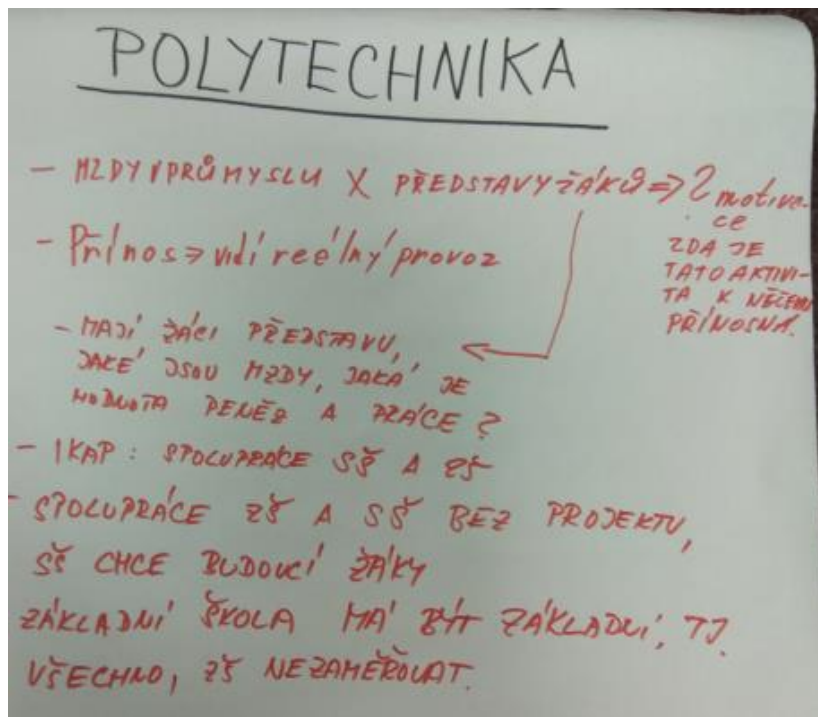 POLYTECHNIKA
- MZDY V PRŮMYSLU X PŘEDSTAVY ŽÁKŮ => ? motiva-
ce
ZDA JE
TATO AKTIVI-
TA K NĚČEMU
PŘÍNOSNÁ.
- Přínos => vidí reélný provoz
- MAJÍ ŽÁCI PŘEDSTAVU,
JAKÉ JSOU MZDY, JAKÁ JE
HODNOTA PENĚZ A PRÁCE ?
- IKAP : SPOLUPRÁCE SŠ A ZŠ
- SPOLUPRÁCE ZŠ A SŠ BEZ PROJEKTU,
SŠ CHCE BUDOUCÍ ŽÁKY
ZÁKLADNÍ ŠKOLA MÁ BÝT ZÁKLADNÍ, TJ.
VŠECHNO, ZŠ NEZAMĚŘOVAT.